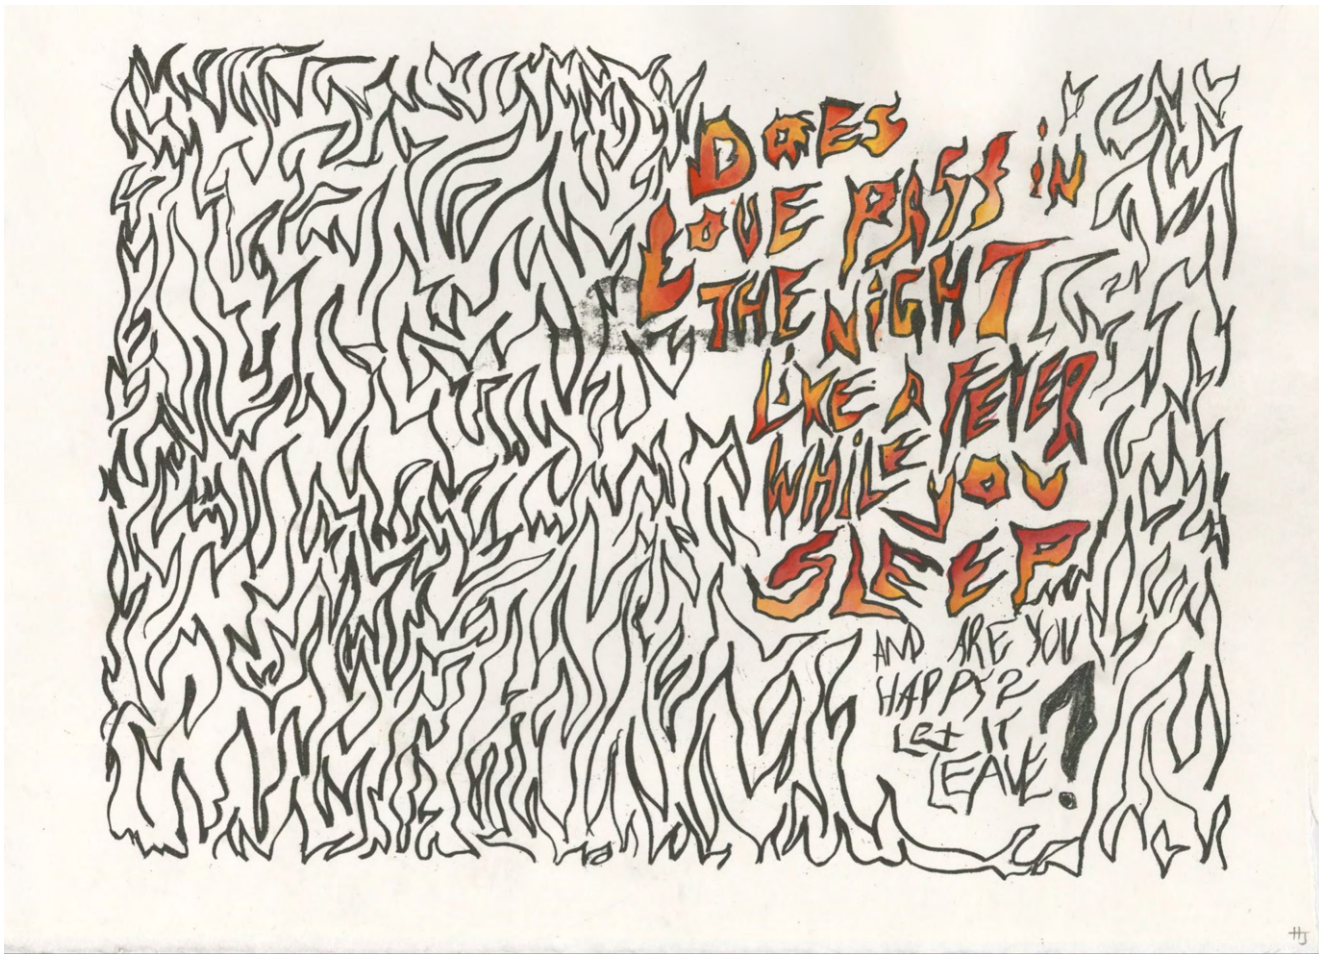 DOES
LOVE PASS IN
THE NIGHT
LIKE A FEVER
WHILE YOU
SLEEP
AND ARE YOU
HAPPY?
LET IT
LEAVE?
HJ